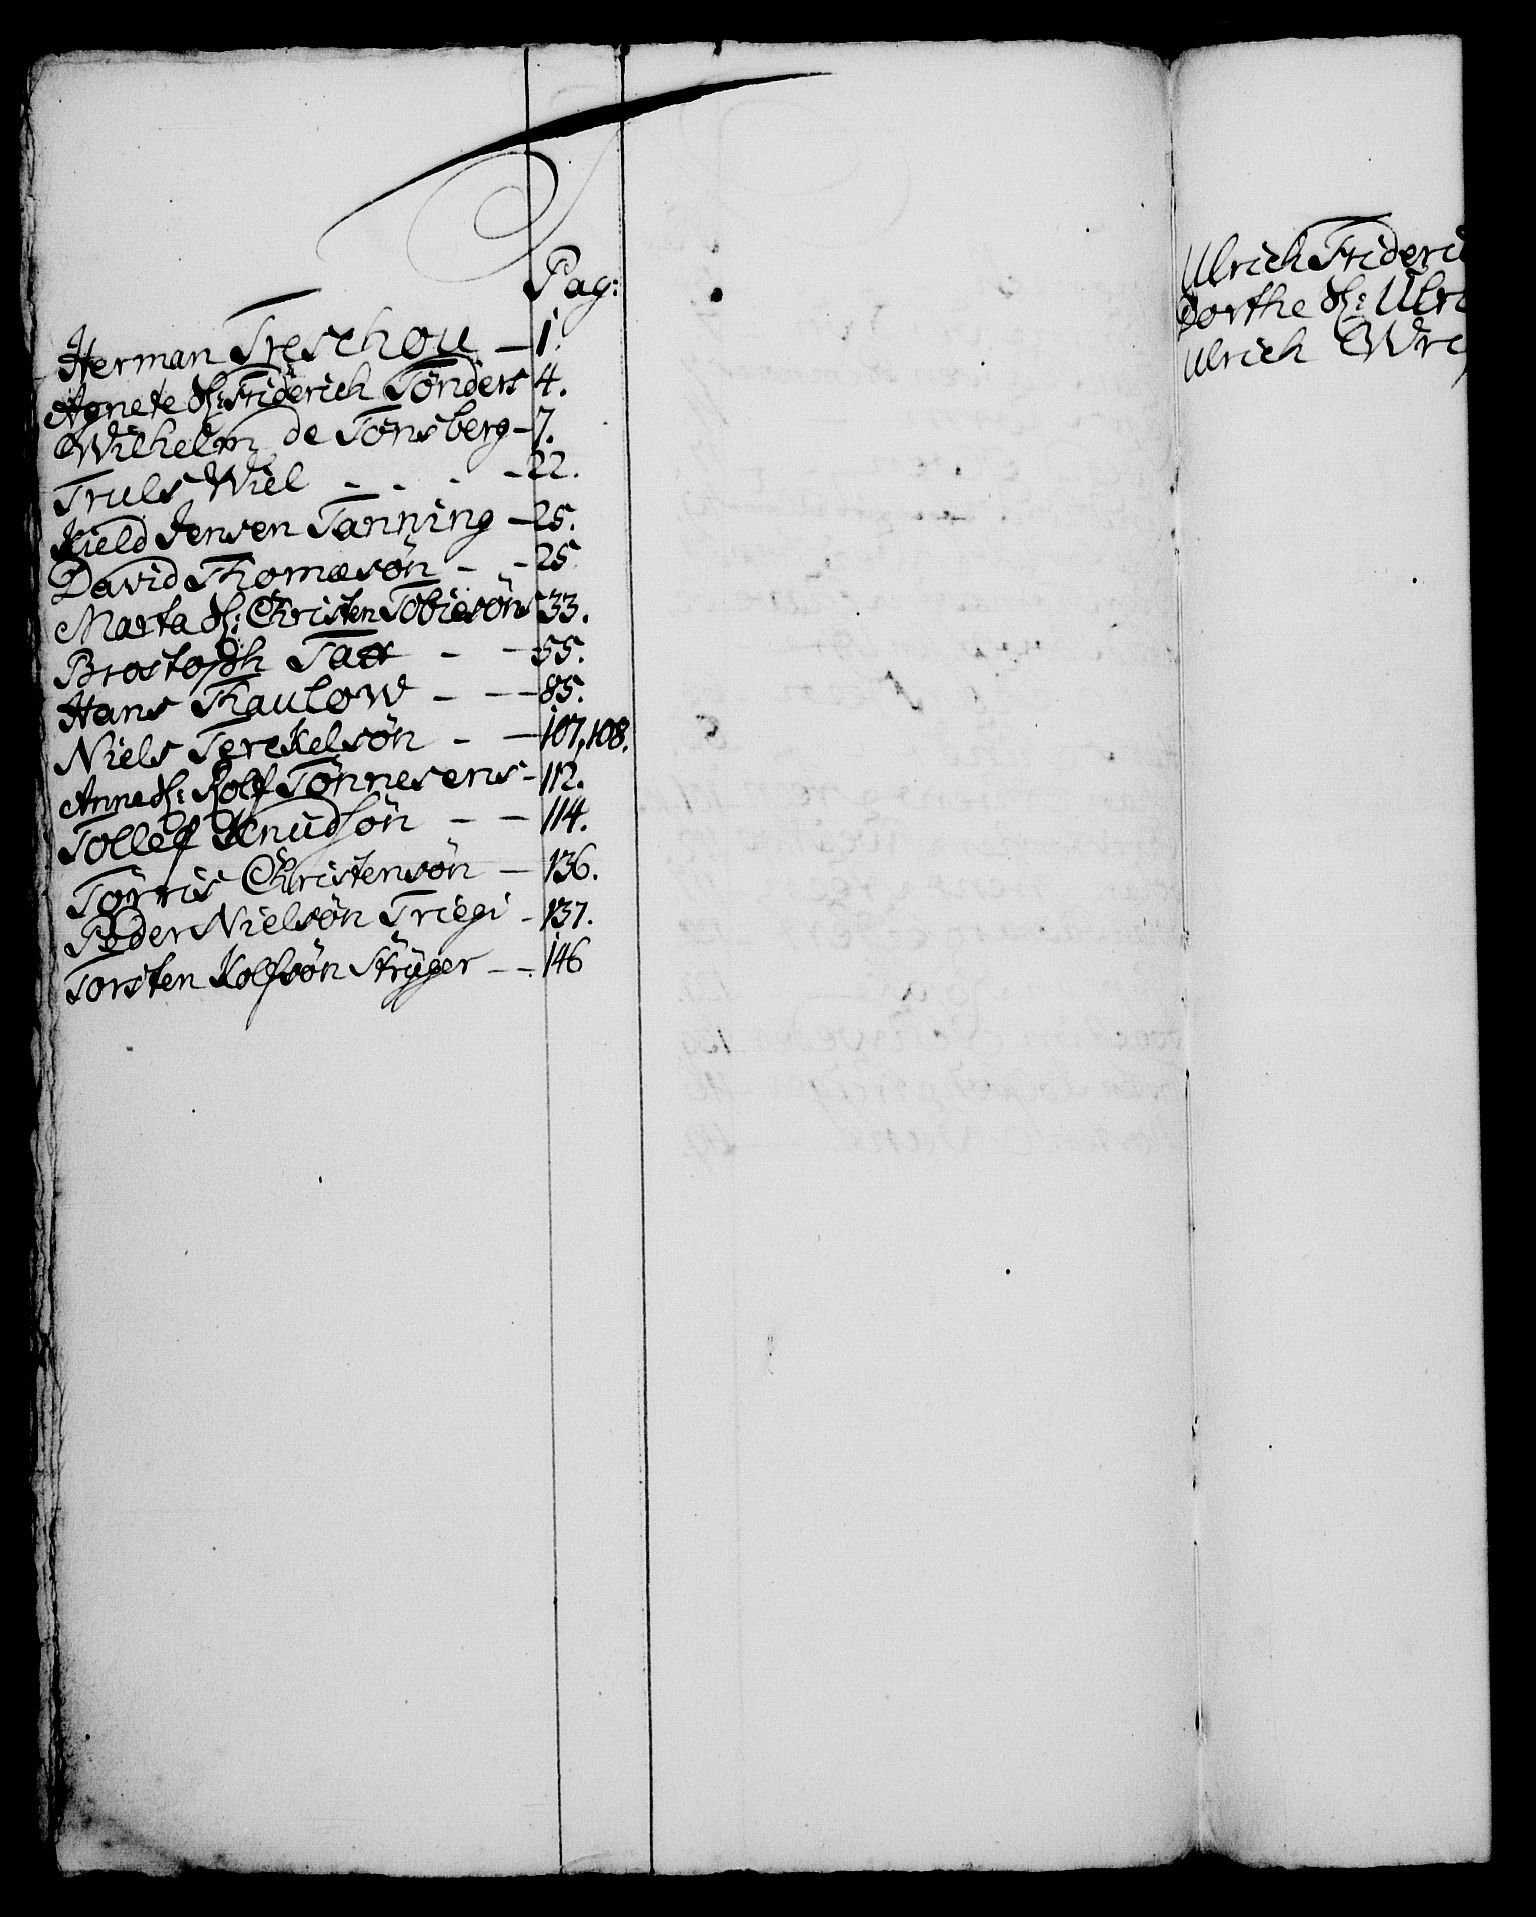 Pag:
Herman Treschou — 1.
Agnete Sl: Friderich Tønders 4.
Wilhelm de Tønsberg – 7.
Truls Wiel - - - - 22.
Kield Jensen Tanning — 25.
David Thomæsøn - - 25
Marta Sl: Christen Tobiesøns 33.
Brostoph Tatt - - 55.
Hans Thaulow - - - 85.
Niels Terckelsøn - - 107, 108.
Anne Sl: Rolf Tønnesens - 112.
Tollef Knudsøn - - 114.
Tørris Christensøn — 136.
Peder Nielsøn Triegi - 137.
Torsten Rolfsøn Stryger - - 146
Ulrich Frideri
Dorthe Sl: Ulri
Ulrich Wri